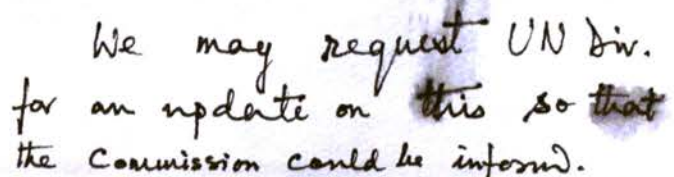 We may request UN Div.
for an update on this so that
the Commission could be informd.